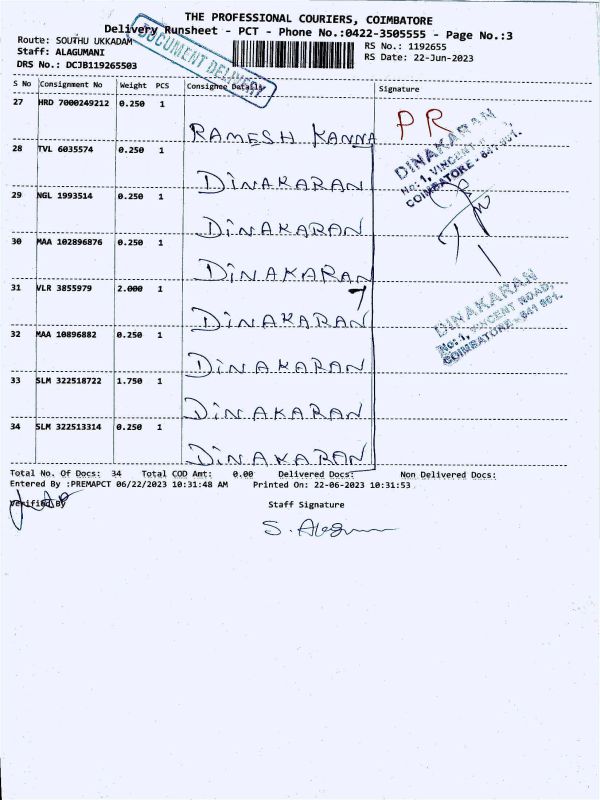 THE PROFESSIONAL COURIERS, COIMBATORE
Delivery Runsheet - PCT - Phone No.:0422-3505555 - Page No.:3
Route: SOUTHU UKKADAM
Staff: ALAGUMANI
DRS No.: DCJB119265503
DOCUMENT DELIVERY
RS No.: 1192655
RS Date: 22-Jun-2023
S No Consignment No Weight PCS Consignee Details Signature
27 HRD 7000249212 0.250 1
RAMESH KANNA PR
28 TVL 6035574 0.250 1
DINAKARAN
DINAKARAN
No: 1, VINCENT
COIMBATORE - 641 001.
29 NGL 1993514 0.250 1
DINAKARAN
30 MAA 102896876 0.250 1
DINAKARAN
31 VLR 3855979 2.000 1
7
DINAKARAN
DINAKARAN
No: 1, VINCENT ROAD,
COIMBATORE - 641 001.
32 MAA 10896882 0.250 1
DINAKARAN
33 SLM 322518722 1.750 1
DINAKARAN
34 SLM 322513314 0.250 1
DINAKARAN
Total No. Of Docs: 34 Total COD Amt: 0.00 Delivered Docs: Non Delivered Docs:
Entered By :PREMAPCT 06/22/2023 10:31:48 AM Printed On: 22-06-2023 10:31:53
Verified By Staff Signature